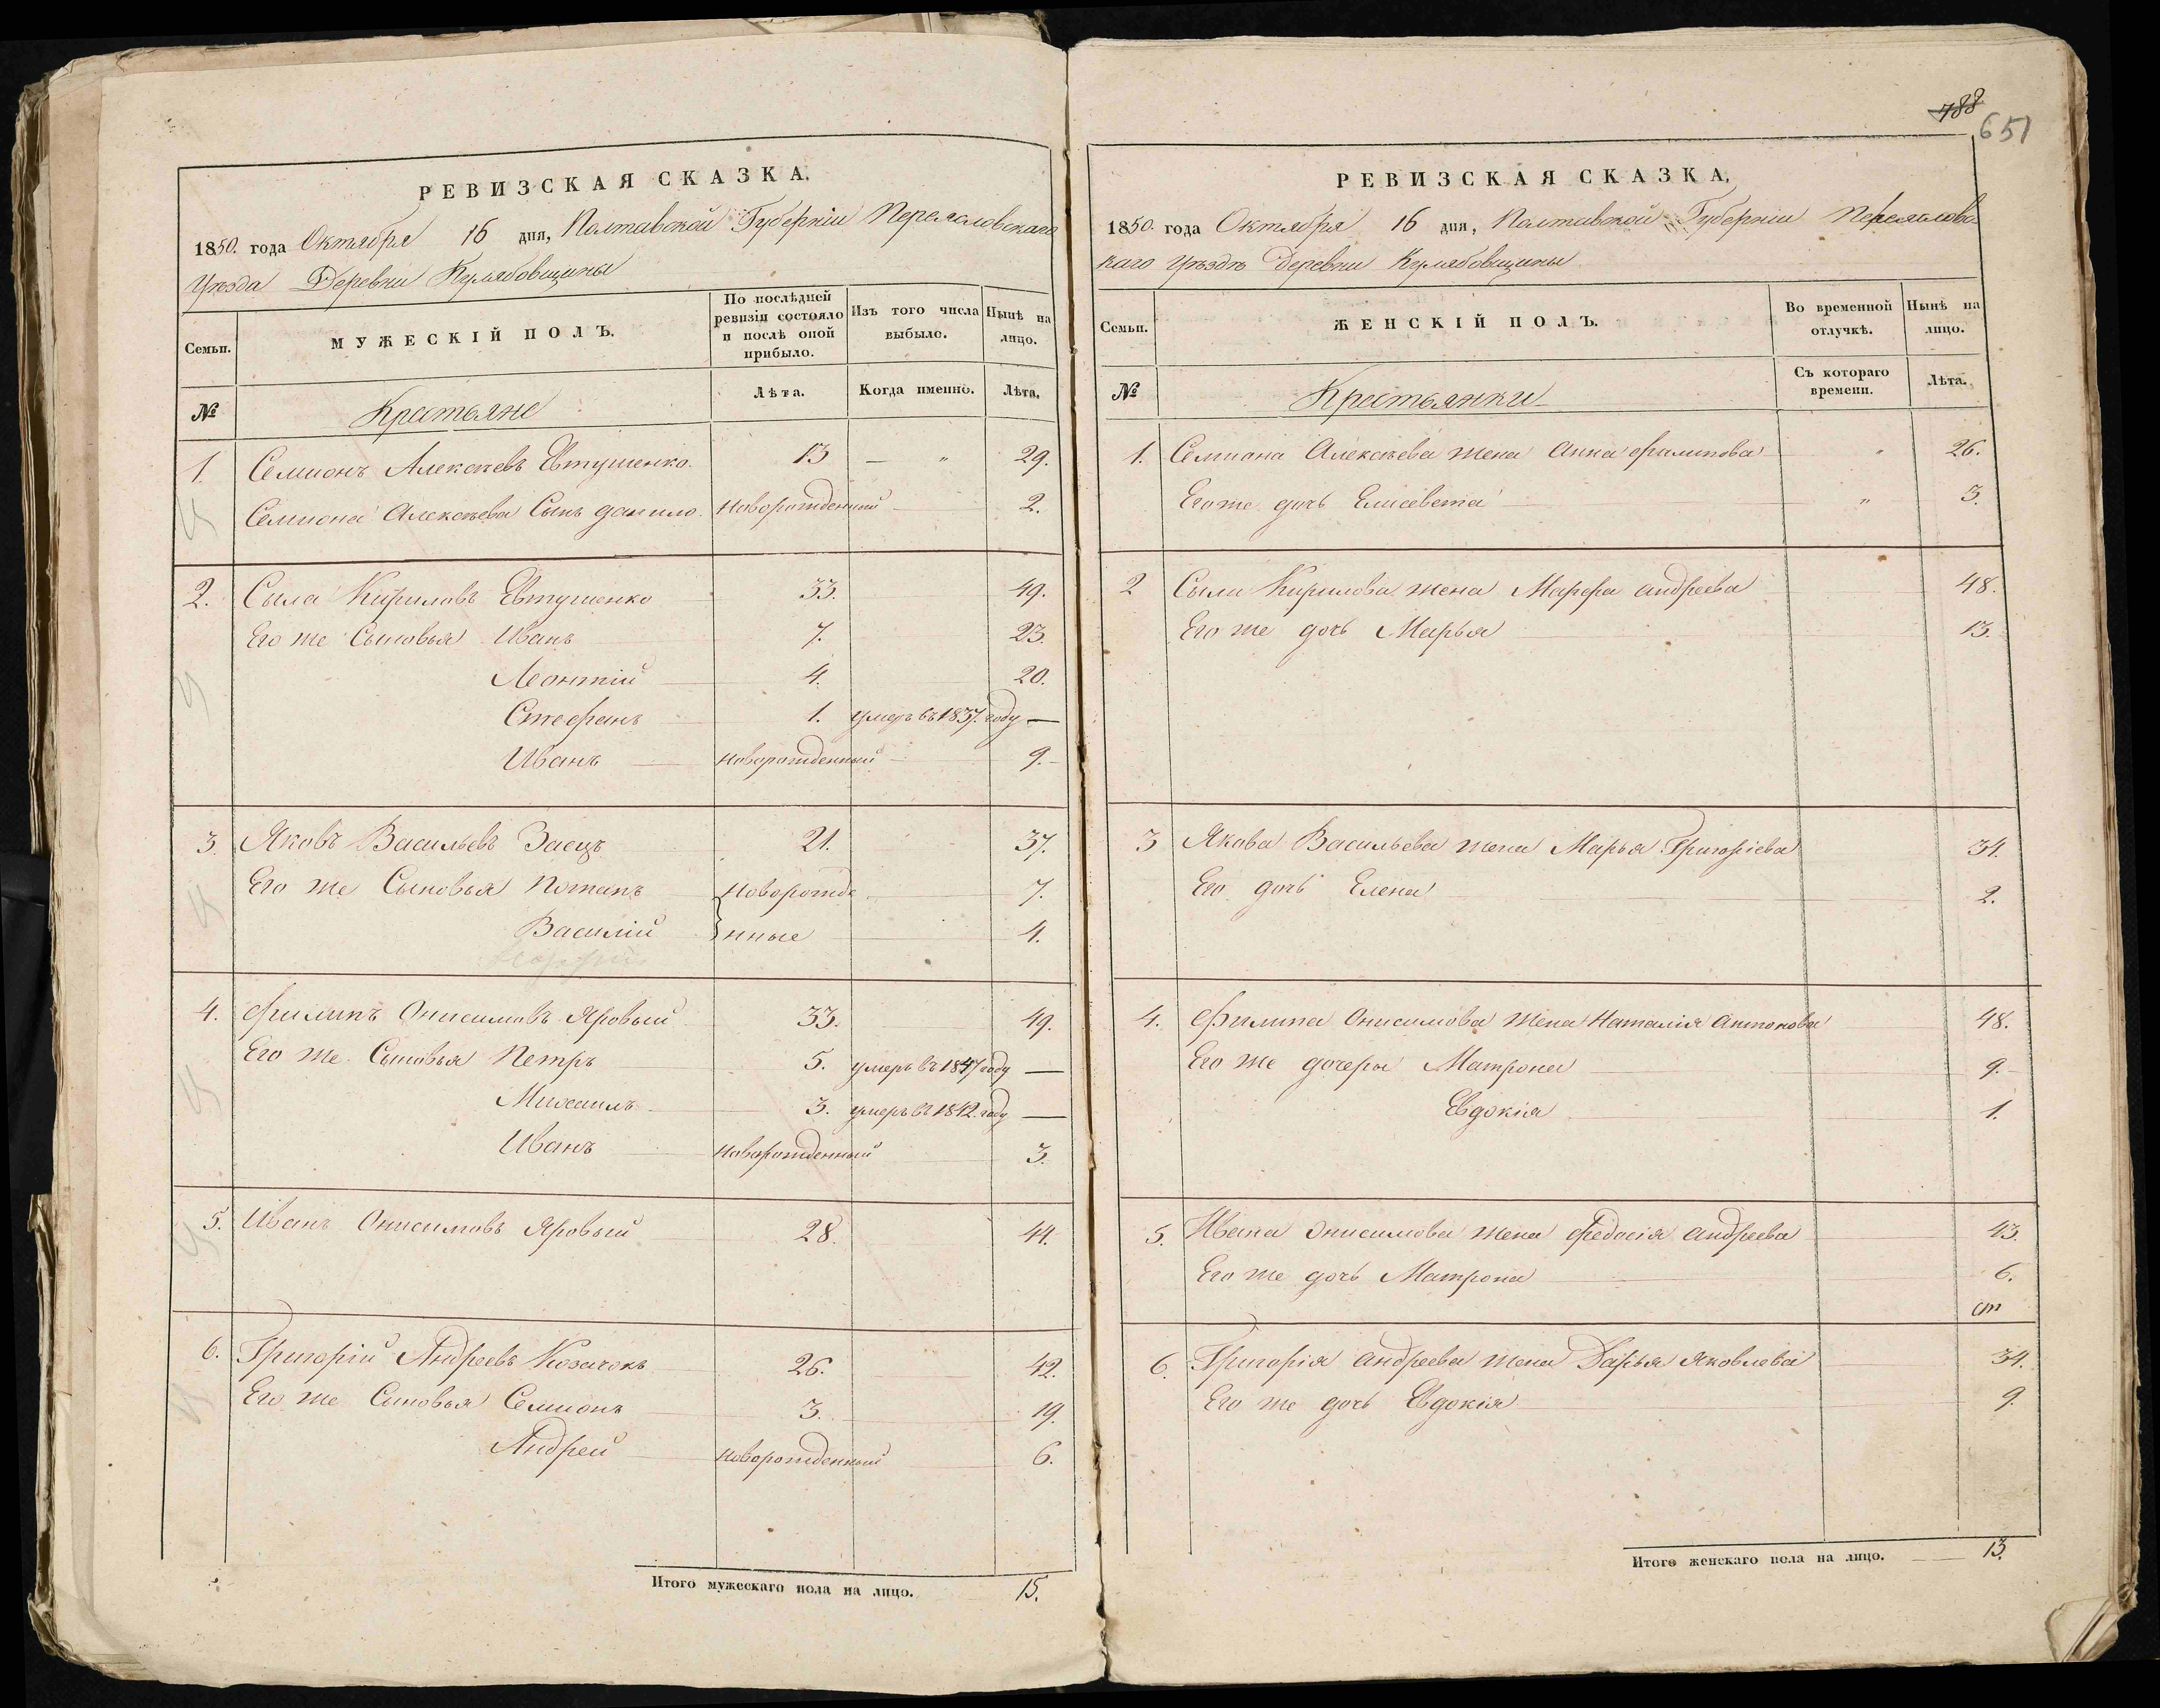 РЕВИЗСКАЯ СКАЗКА.
1850. года Октября 16 дня, Полтавской Губернии Переясловскаго
Уезда Деревни Кулябовщины
Семьи.
МУЖЕСКІЙ ПОЛЪ.
По послѣдней ревизіи состояло и послѣ оной прибыло.
Изъ того числа выбыло.
Нынѣ на лицо.
№
Крестьяне
Лѣта.
Когда именно.
Лѣта.
1. Семионъ Алексѣевъ Евтушенко. 13 — " 29.
Семиона Алексѣева Сынъ данило. Новорожденный 2.
2. Сыла Кириловъ Евтушенко 33. 49.
Его же Сыновья Иванъ 7. 23.
Леонтій 4. 20.
Стефанъ 1. умеръ въ 1837. году —
Иванъ Новорожденный 9.
3. Яковъ Васильевъ Заецъ 21. 37.
Его же Сыновья Потапъ Новорожде 7.
Василій нные 4.
4. Филипъ Онисимовъ Яровый 33. 49.
Его же Сыновья Петръ 5. умеръ въ 1847 году —
Михаилъ 3. умеръ въ 1842. году —
Иванъ новорожденный 3.
5. Иванъ Онисимовъ Яровый 28. 44.
6. Григорій Андреевъ Козачокъ 26. 42.
Его же Сыновья Семионъ 3. 19.
Андрей новорожденный 6.
Итого мужескаго пола на лицо. 15.
788
651
РЕВИЗСКАЯ СКАЗКА.
1850. года Октября 16 дня, Полтавской Губерніи Переяслов
скаго Уѣздъ деревни Кулябовщины
Семьи.
ЖЕНСКІЙ ПОЛЪ.
Во временной отлучкѣ.
Нынѣ на лицо.
№
Крестьянки
Съ котораго времени.
Лѣта.
1. Семиона Алексѣева жена Анна Филипова " 26.
Егоже дочь Елисевета " 3.
2 Сылы Кирилова жена Марфа андреева 48.
Его же дочь Марья 13.
3 Якова Васильева жена Марья Григоріева 34.
Его дочь Елена 2.
4. Филипа Онисимова жена Наталія Антонова 48.
Его же дочеры Матрона 9.
Евдокія 1.
5. Ивана Онисимова жена Федосія андреева 43.
Его же дочь Матрона 6.
6. Григорія андреева жена Дарья Яковлева 34.
Его же дочь Евдокія 9.
Итого женскаго пола на лицо. 13.